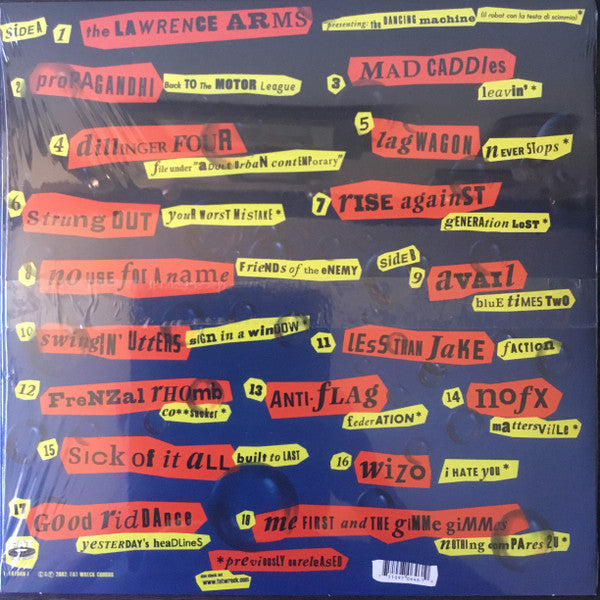 SIDE A 1 the LAWRENCE ARMS *presenting: the DANCING machine (il robot con la testa di scimmia)
2 PROPAGANDHI Back TO The MOTOR League
3 MAD CADDIes leavin'*
4 dillINGER FOUR file under "aDULT URbaN contEMPorary"
5 lagWAGON NEVER Stops*
6 Strung OUT youR WORST MisTAKE*
7 RISE againST GENERAtion LoST*
8 no use for a name FrieNDS of the eNEMY
SIDE B 9 avail bluE tiMES TWO
10 swingIN' UtteRS siGN in a winDOW*
11 LESS THAN JaKE fACTION
12 FReNZal RHOmb co**sucker*
13 ANTI-fLAG fedeRATION*
14 nofx mattersVilLe*
15 Sick of it aLL built to LAST
16 wizo i HATE you*
17 Good RidDAnce yeSTERDAY's heaDLINES
18 me FIRST and THE giMMe giMMes notHing comPAres 2U*
*pREVIOUSLY unReleaSED
FAT
© ℗ 2002, FAT WRECK CHORDS
also check out
www.fatwreck.com